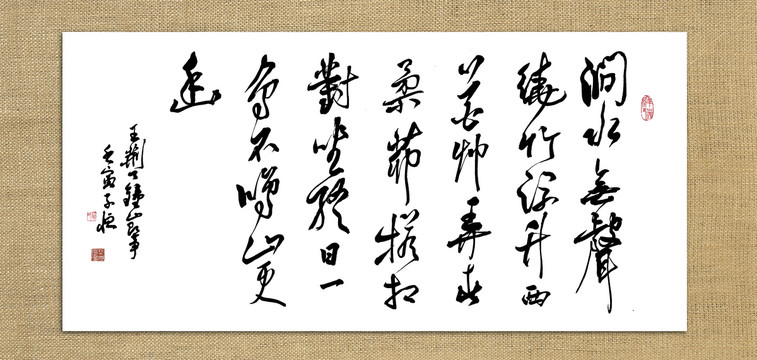 澗水無聲
繞竹流竹西
花艸弄春
柔茅檐相
對坐終日一
鳥不鳴山更
幽
王荊公鍾山即事
壬寅子恒